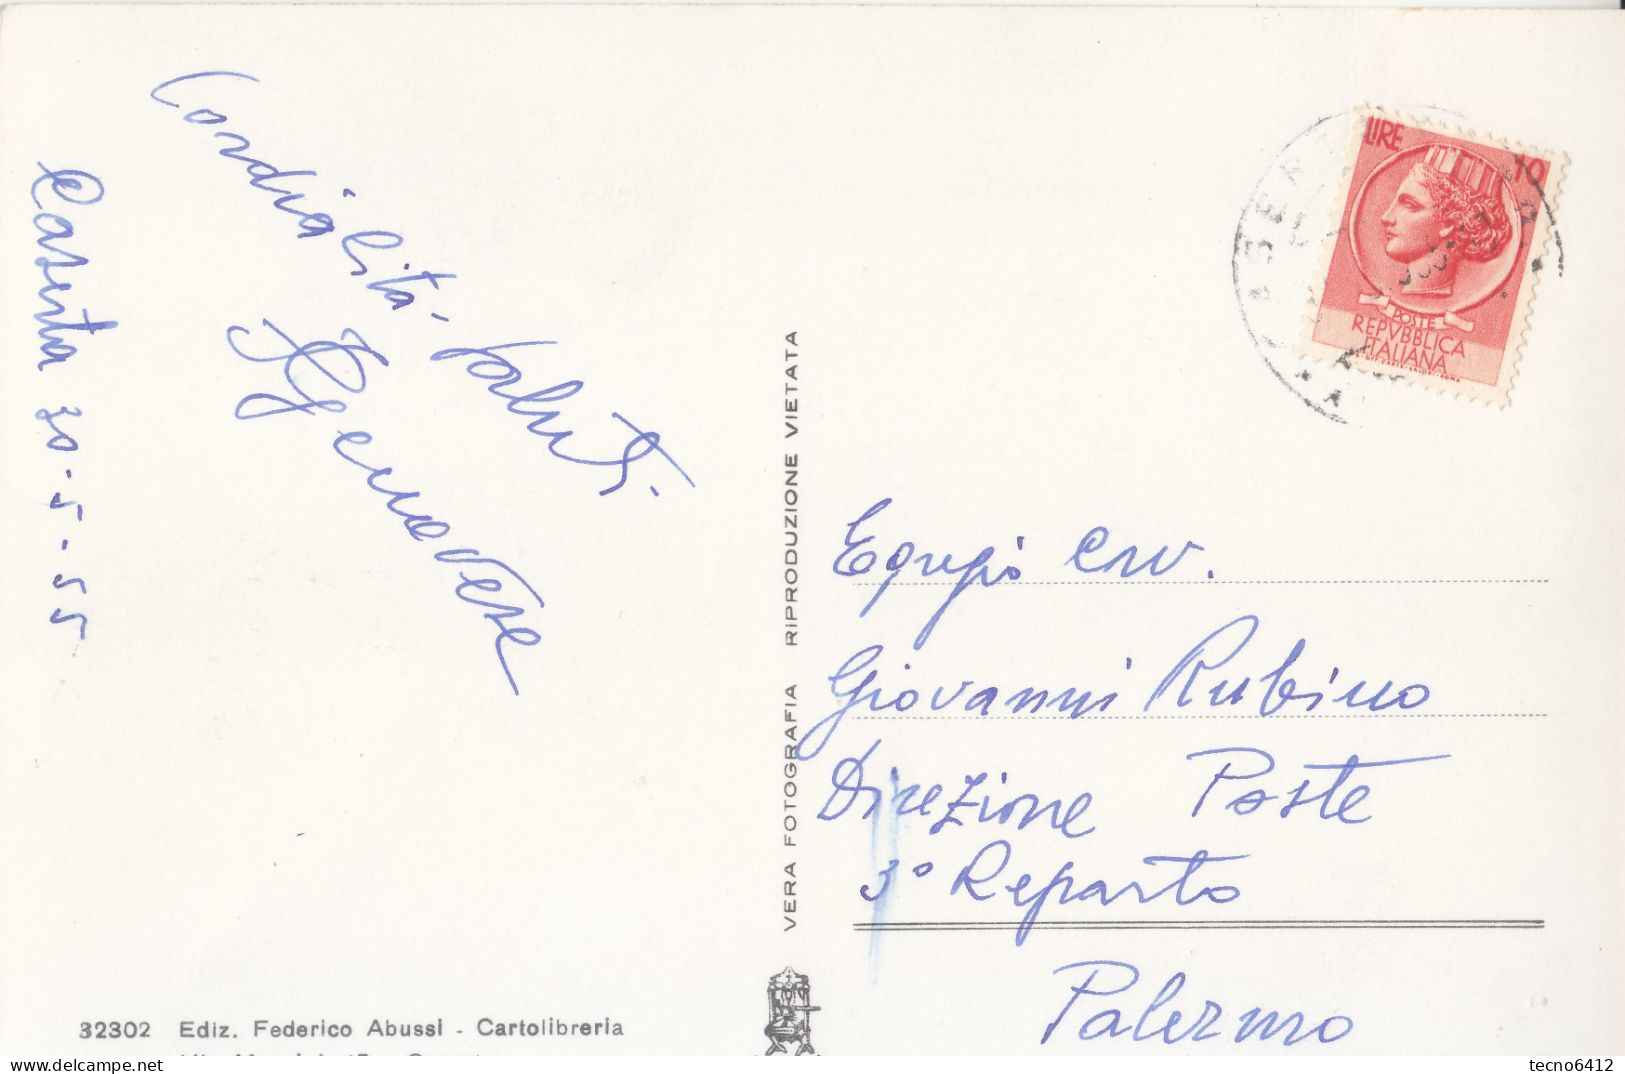 Caserta 30-5-55
Cordialità - Saluti.
Genovese
VERA FOTOGRAFIA RIPRODUZIONE VIETATA
LIRE 10
POSTE
REPVBBLICA
ITALIANA
Egregio
Giovanni Rubino
Direzione Poste
3° Reparto
Palermo
32302 Ediz. Federico Abussi - Cartolibreria
tecno6412